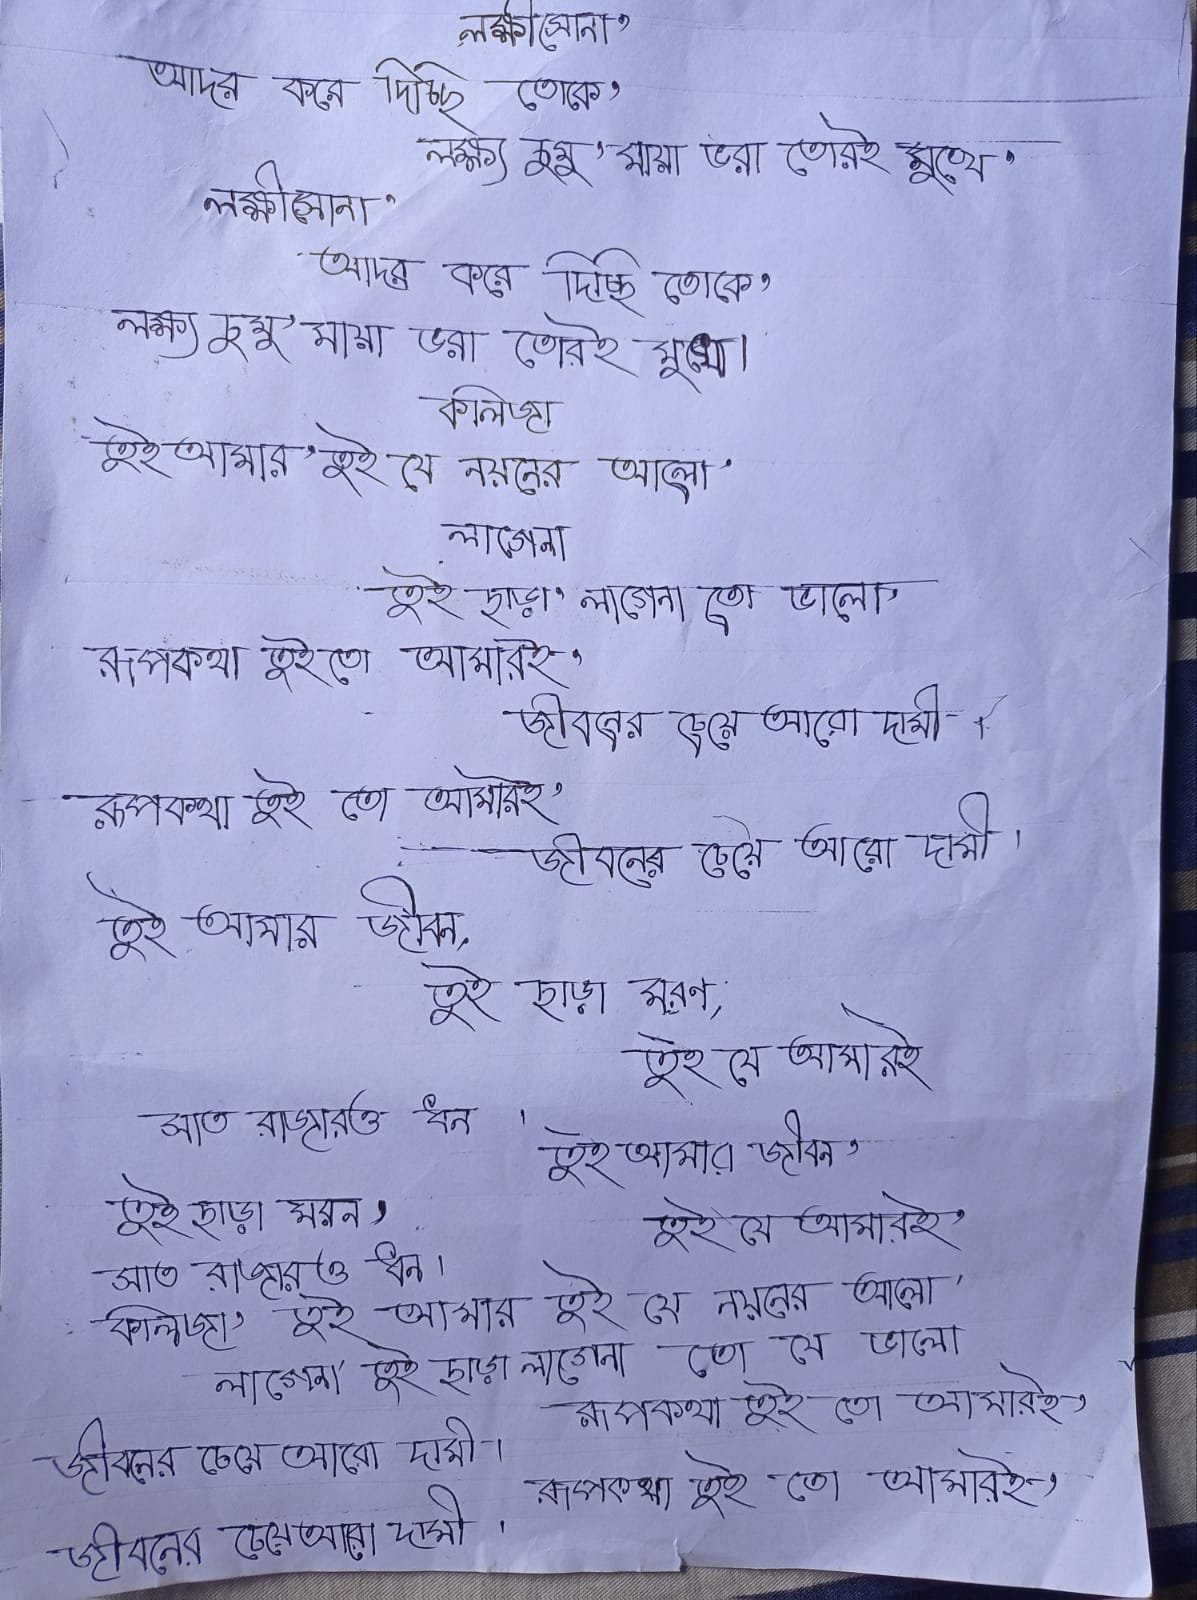 লক্ষ্মীসোনা,
আদর করে দিচ্ছি তোকে,
লক্ষ্য চুমু, মায়া ভরা তোরই মুখে,
লক্ষ্মীসোনা,
আদর করে দিচ্ছি তোকে,
লক্ষ্য চুমু, মায়া ভরা তোরই মুখে।
কলিজা
তুই আমার, তুই যে নয়নের আলো,
লাগেনা
তুই ছাড়া, লাগেনা তো ভালো,
রূপকথা তুই তো আমারই,
জীবনের চেয়ে আরো দামী।
রূপকথা তুই তো আমারই,
জীবনের চেয়ে আরো দামী।
তুই আমার জীবন,
তুই ছাড়া মরণ,
তুই যে আমারই
সাত রাজারও ধন।
তুই আমার জীবন,
তুই ছাড়া মরন,
তুই যে আমারই,
সাত রাজারও ধন।
কলিজা, তুই আমার তুই যে নয়নের আলো,
লাগেনা তুই ছাড়া লাগেনা তো যে ভালো
রূপকথা তুই তো আমারই,
জীবনের চেয়ে আরো দামী।
রূপকথা তুই তো আমারই,
জীবনের চেয়ে আরো দামী।